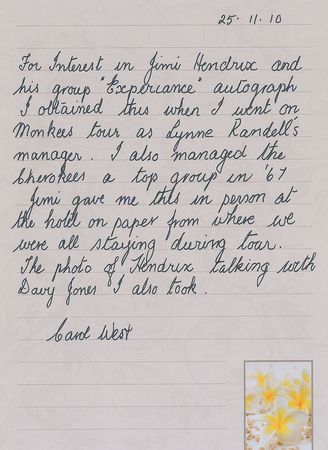 25·11·10
For Interest in Jimi Hendrix and
his group "Experiance" autograph
I obtained this when I went on
Monkees tour as Lynne Randell's
manager. I also managed the
Cherokees a top group in '67
Jimi gave me this in person at
the hotel on paper from where we
were all staying during tour.
The photo of Hendrix talking with
Davy Jones I also took.
Carol West